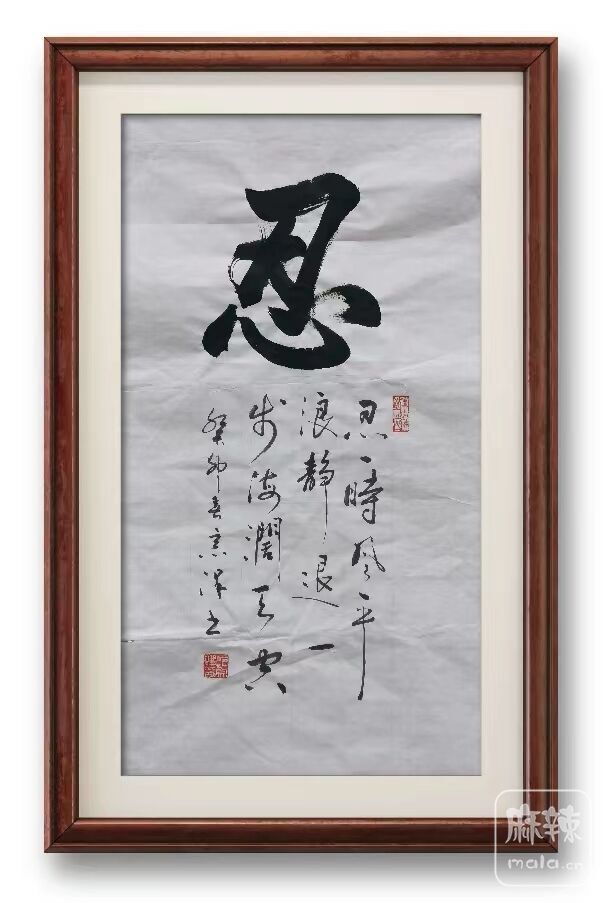 忍
忍一时風平
浪静退一
步海阔天空
癸卯春京洋书
麻辣
mala.cn